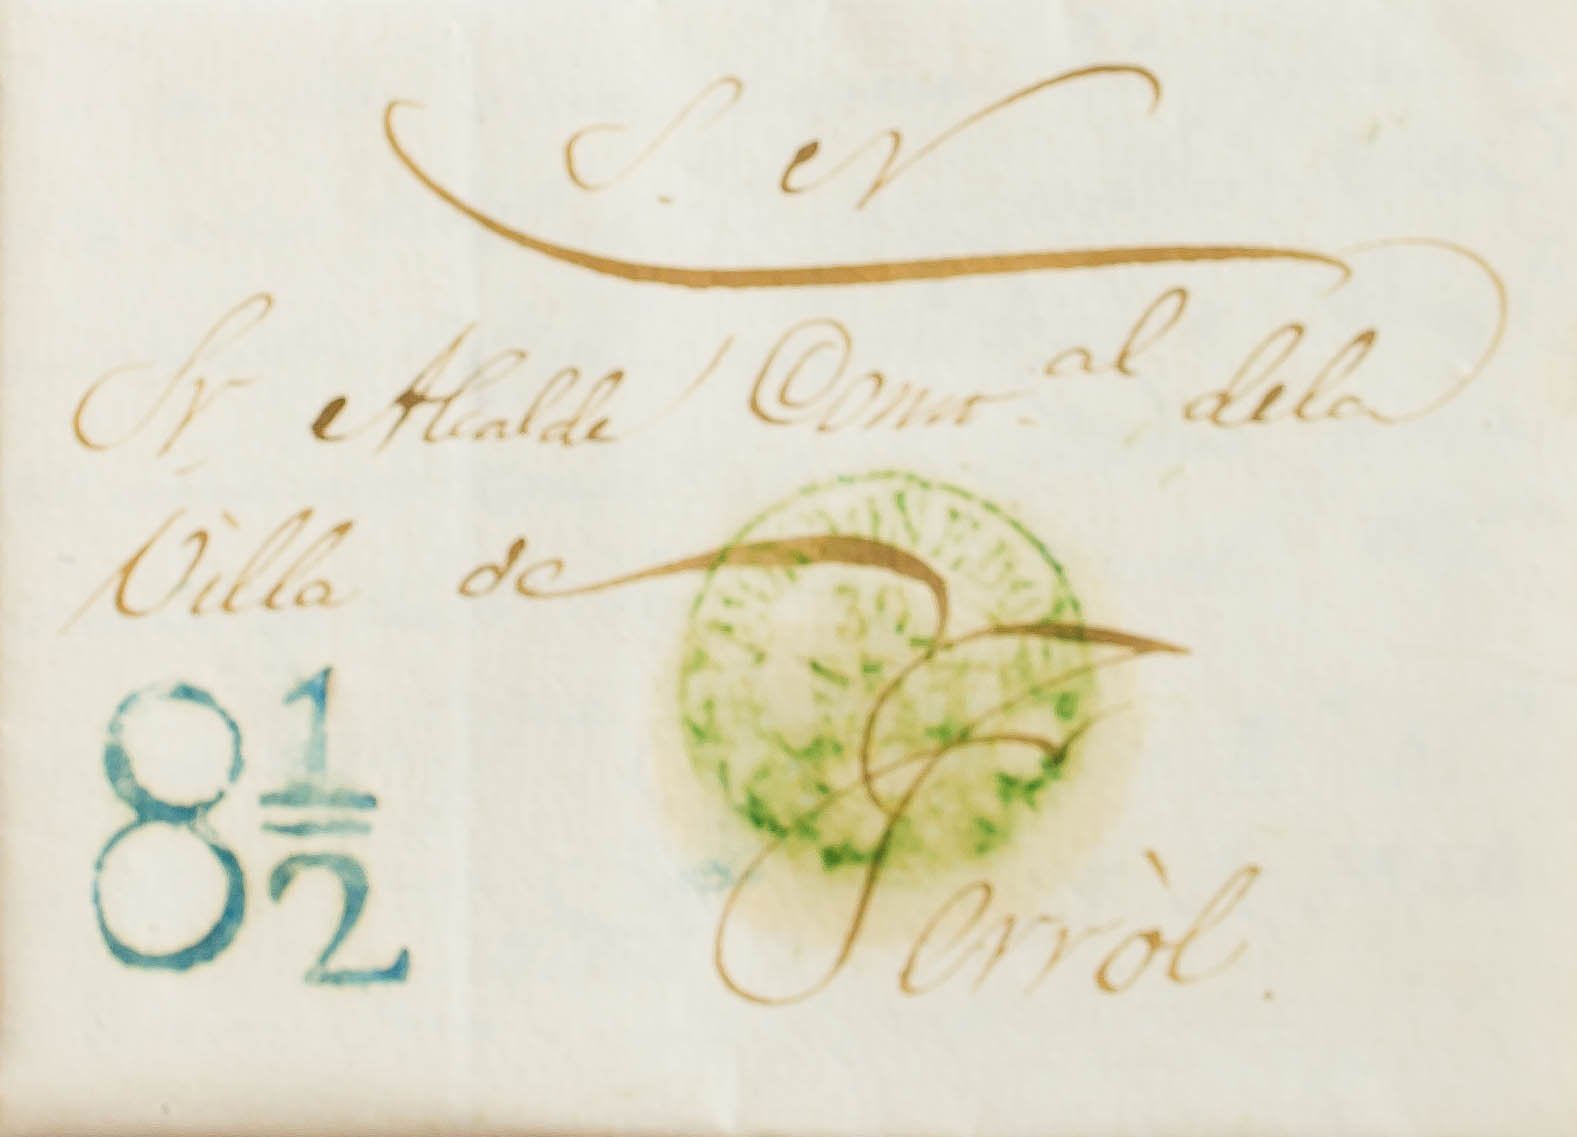 S. N
Sr. Alcalde Con... al dela
Villa de
Ferròl.
8 1/2
32